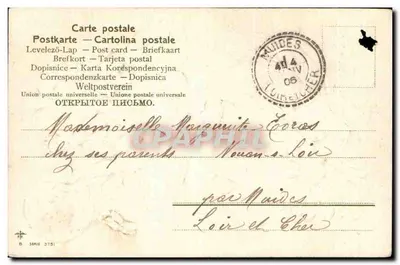 Carte postale
Postkarte — Cartolina postale
Levelező-Lap — Post card — Briefkaart
Brefkort — Tarjeta postal
Dopisnice — Karta Korespondencyjna
Correspondenzkarte — Dopisnica
Weltpostverein
Union postale universelle — Unione postale universale
ОТКРЫТОЕ ПИСЬМО.
MUIDES
4
06
LOIR-ET-CHER
Mademoiselle Marguerite
chez ses parents Nouan-s-Loire
par Muides
Loir et Cher